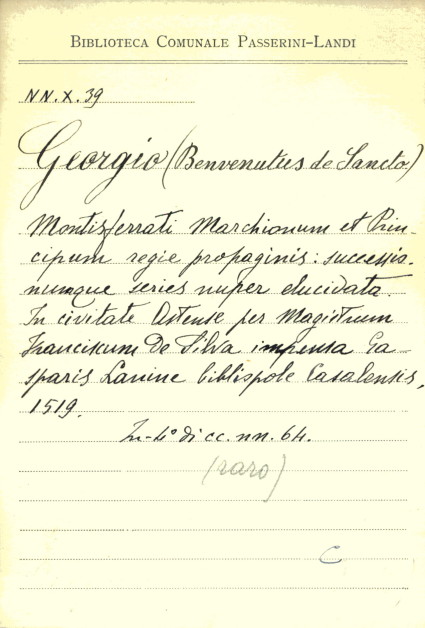 BIBLIOTECA COMUNALE PASSERINI-LANDI
NN.X.39
Georgio (Benvenutus de Sancto)
Montisferrati Marchionum et Prin-
cipum regie propaginis: successio-
numque series nuper elucidata.
In civitate Astense per Magistrum
Franciscum De Silva impensa Ga
sparis Lanine bibliopole Casalensis,
1519.
In-4º di cc. nn. 64.
(raro)
C